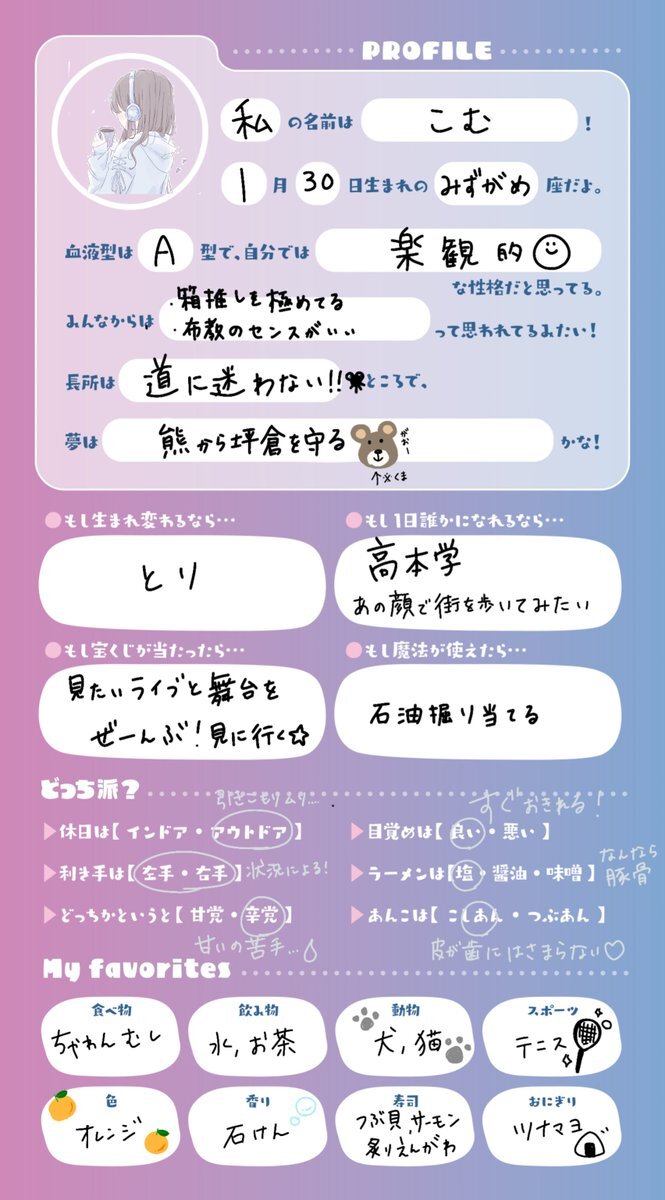 PROFILE
私の名前は こむ !
1月30日生まれの みずがめ 座だよ。
血液型は A 型で、自分では 楽観的
な性格だと思ってる。
みんなからは ・箱推しを極めてる
・布教のセンスがいい
って思われてるみたい!
長所は 道に迷わない!! ところで、
夢は 熊から坪倉を守る がおー かな!
↑※くま
もし生まれ変わるなら…
とり
もし1日誰かになれるなら…
高本学
あの顔で街を歩いてみたい
もし宝くじが当たったら…
見たいライブと舞台を
ぜーんぶ!見に行く☆
もし魔法が使えたら…
石油掘り当てる
どっち派?
引きこもりムリ…
▶休日は【 インドア・アウトドア 】
すぐおきれる!
▶目覚めは【 良い・悪い 】
▶利き手は【 左手・右手 】状況による!
▶ラーメンは【塩・醤油・味噌 】
なんなら
豚骨
▶どっちかというと【 甘党・辛党 】
甘いの苦手…
▶あんこは【 こしあん・つぶあん 】
皮が歯にはさまらない♡
My favorites
食べ物
ちゃわんむし
飲み物
水,お茶
動物
犬,猫
スポーツ
テニス
色
オレンジ
香り
石けん
寿司
つぶ貝,サーモン
炙りえんがわ
おにぎり
ツナマヨ